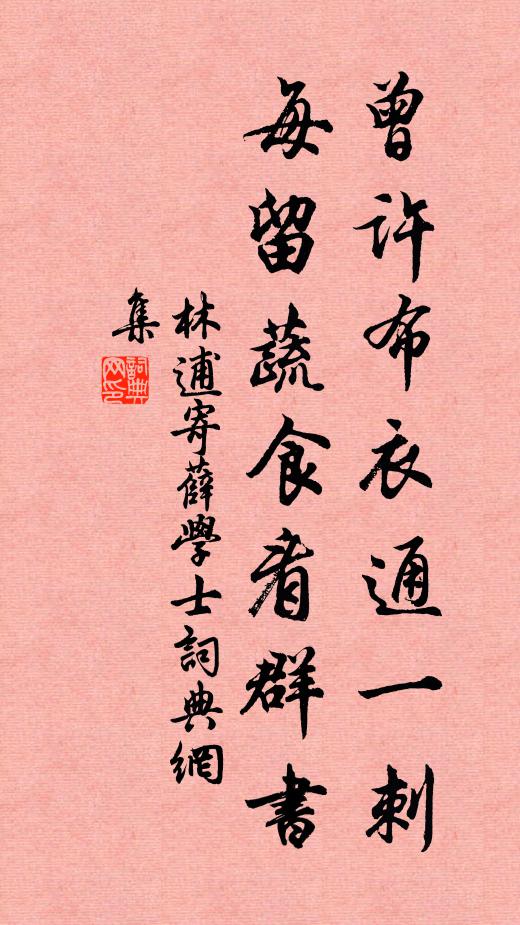 曾許布衣通一刺
每留蔬食看群書
林逋寄薛學士詞典網
集
詞典网印